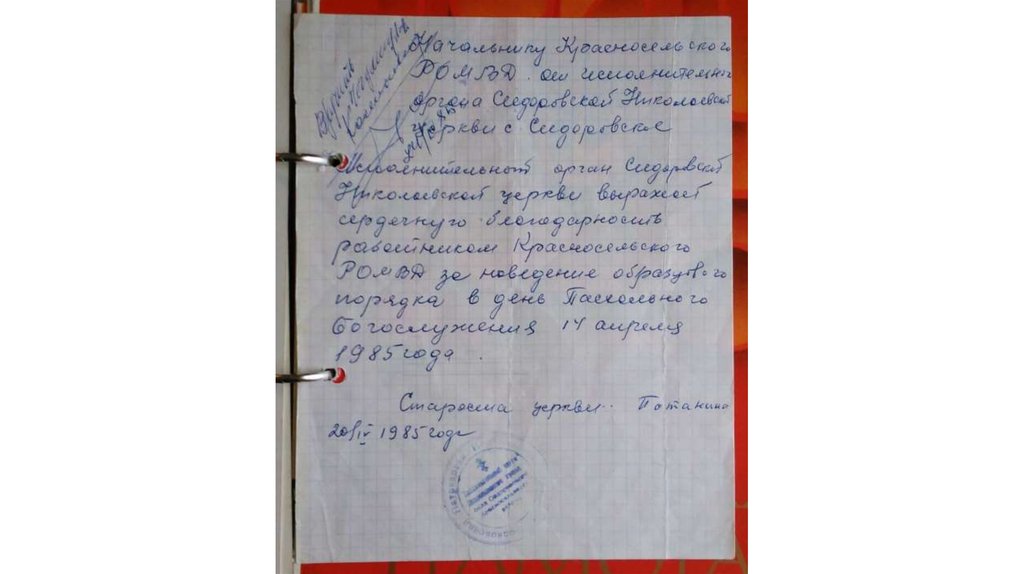 Начальнику Красносельского
РОМВД от исполнительно
органа Сидоровской Николаевской
церкви с Сидоровское
Исполнительный орган Сидоровской
Николаевской церкви выражает
сердечную благодарность
работником Красносельского
РОМВД за наведение образцового
порядка в день Пасхольного
богослужения 14 апреля
1985 года.
Староста церкви. Потанина
20/IV 1985 года